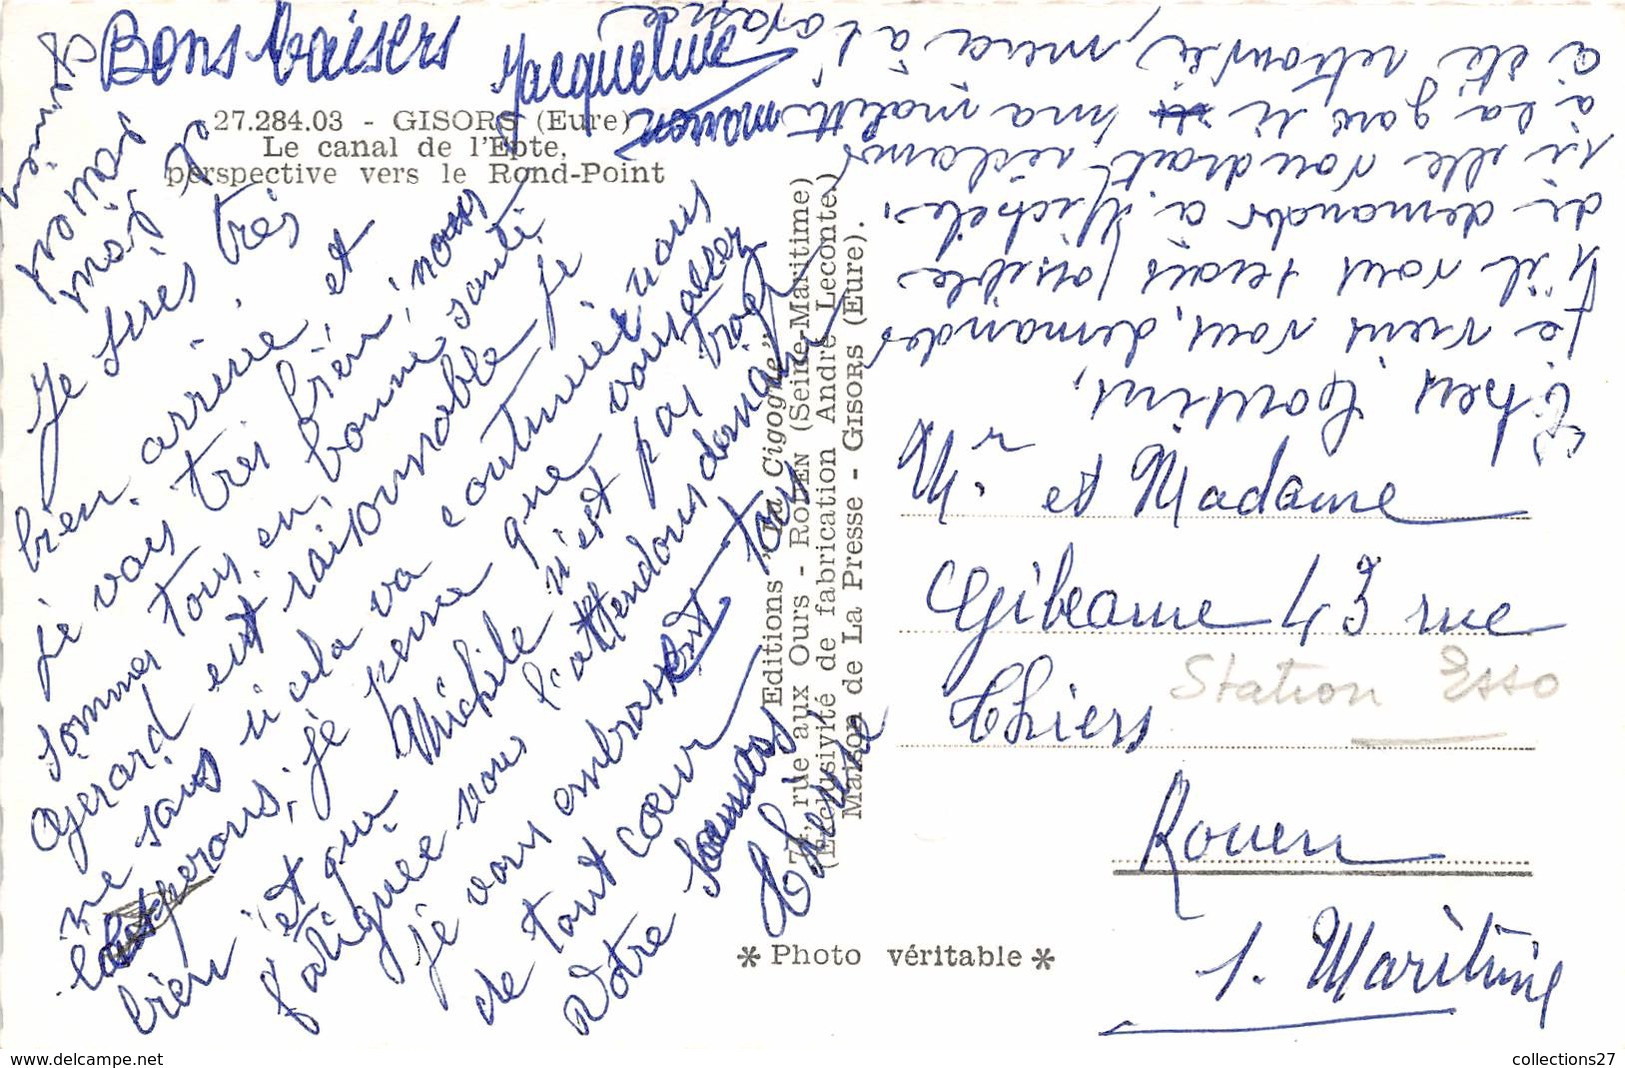 Bons baisers
Jacqueline
manon
27.284.03 - GISORS (Eure)
Le canal de l'Epte,
perspective vers le Rond-Point
maman
mois
Je suis très
bien arrivée et
je vais très bien, nous
sommes tous en bonne santé
Gérard est raisonnable je
ne sais si cela va continuer nous
l'espérons, je pense que vous allez
bien et que Michèle n'est pas trop
fatiguée nous l'attendons demain
je vous embrasse tous
de tout cœur
Votre
Cher Cousins,
je viens vous demander
s'il vous serais possible
de demander a Michèle,
si elle voudrait réclamer
à la gare si ma malette
a été retrouvée, merci à l'avance
74, rue aux Ours - ROUEN (Seine-Maritime)
Editions "La Cigogne"
(Exclusivité de fabrication André Leconte)
Maison de La Presse - GISORS (Eure).
Mr et Madame
Gibeaume 43 rue
Thiers
Station Esso
Rouen
S. Maritime
* Photo véritable *
www.delcampe.net
collections27